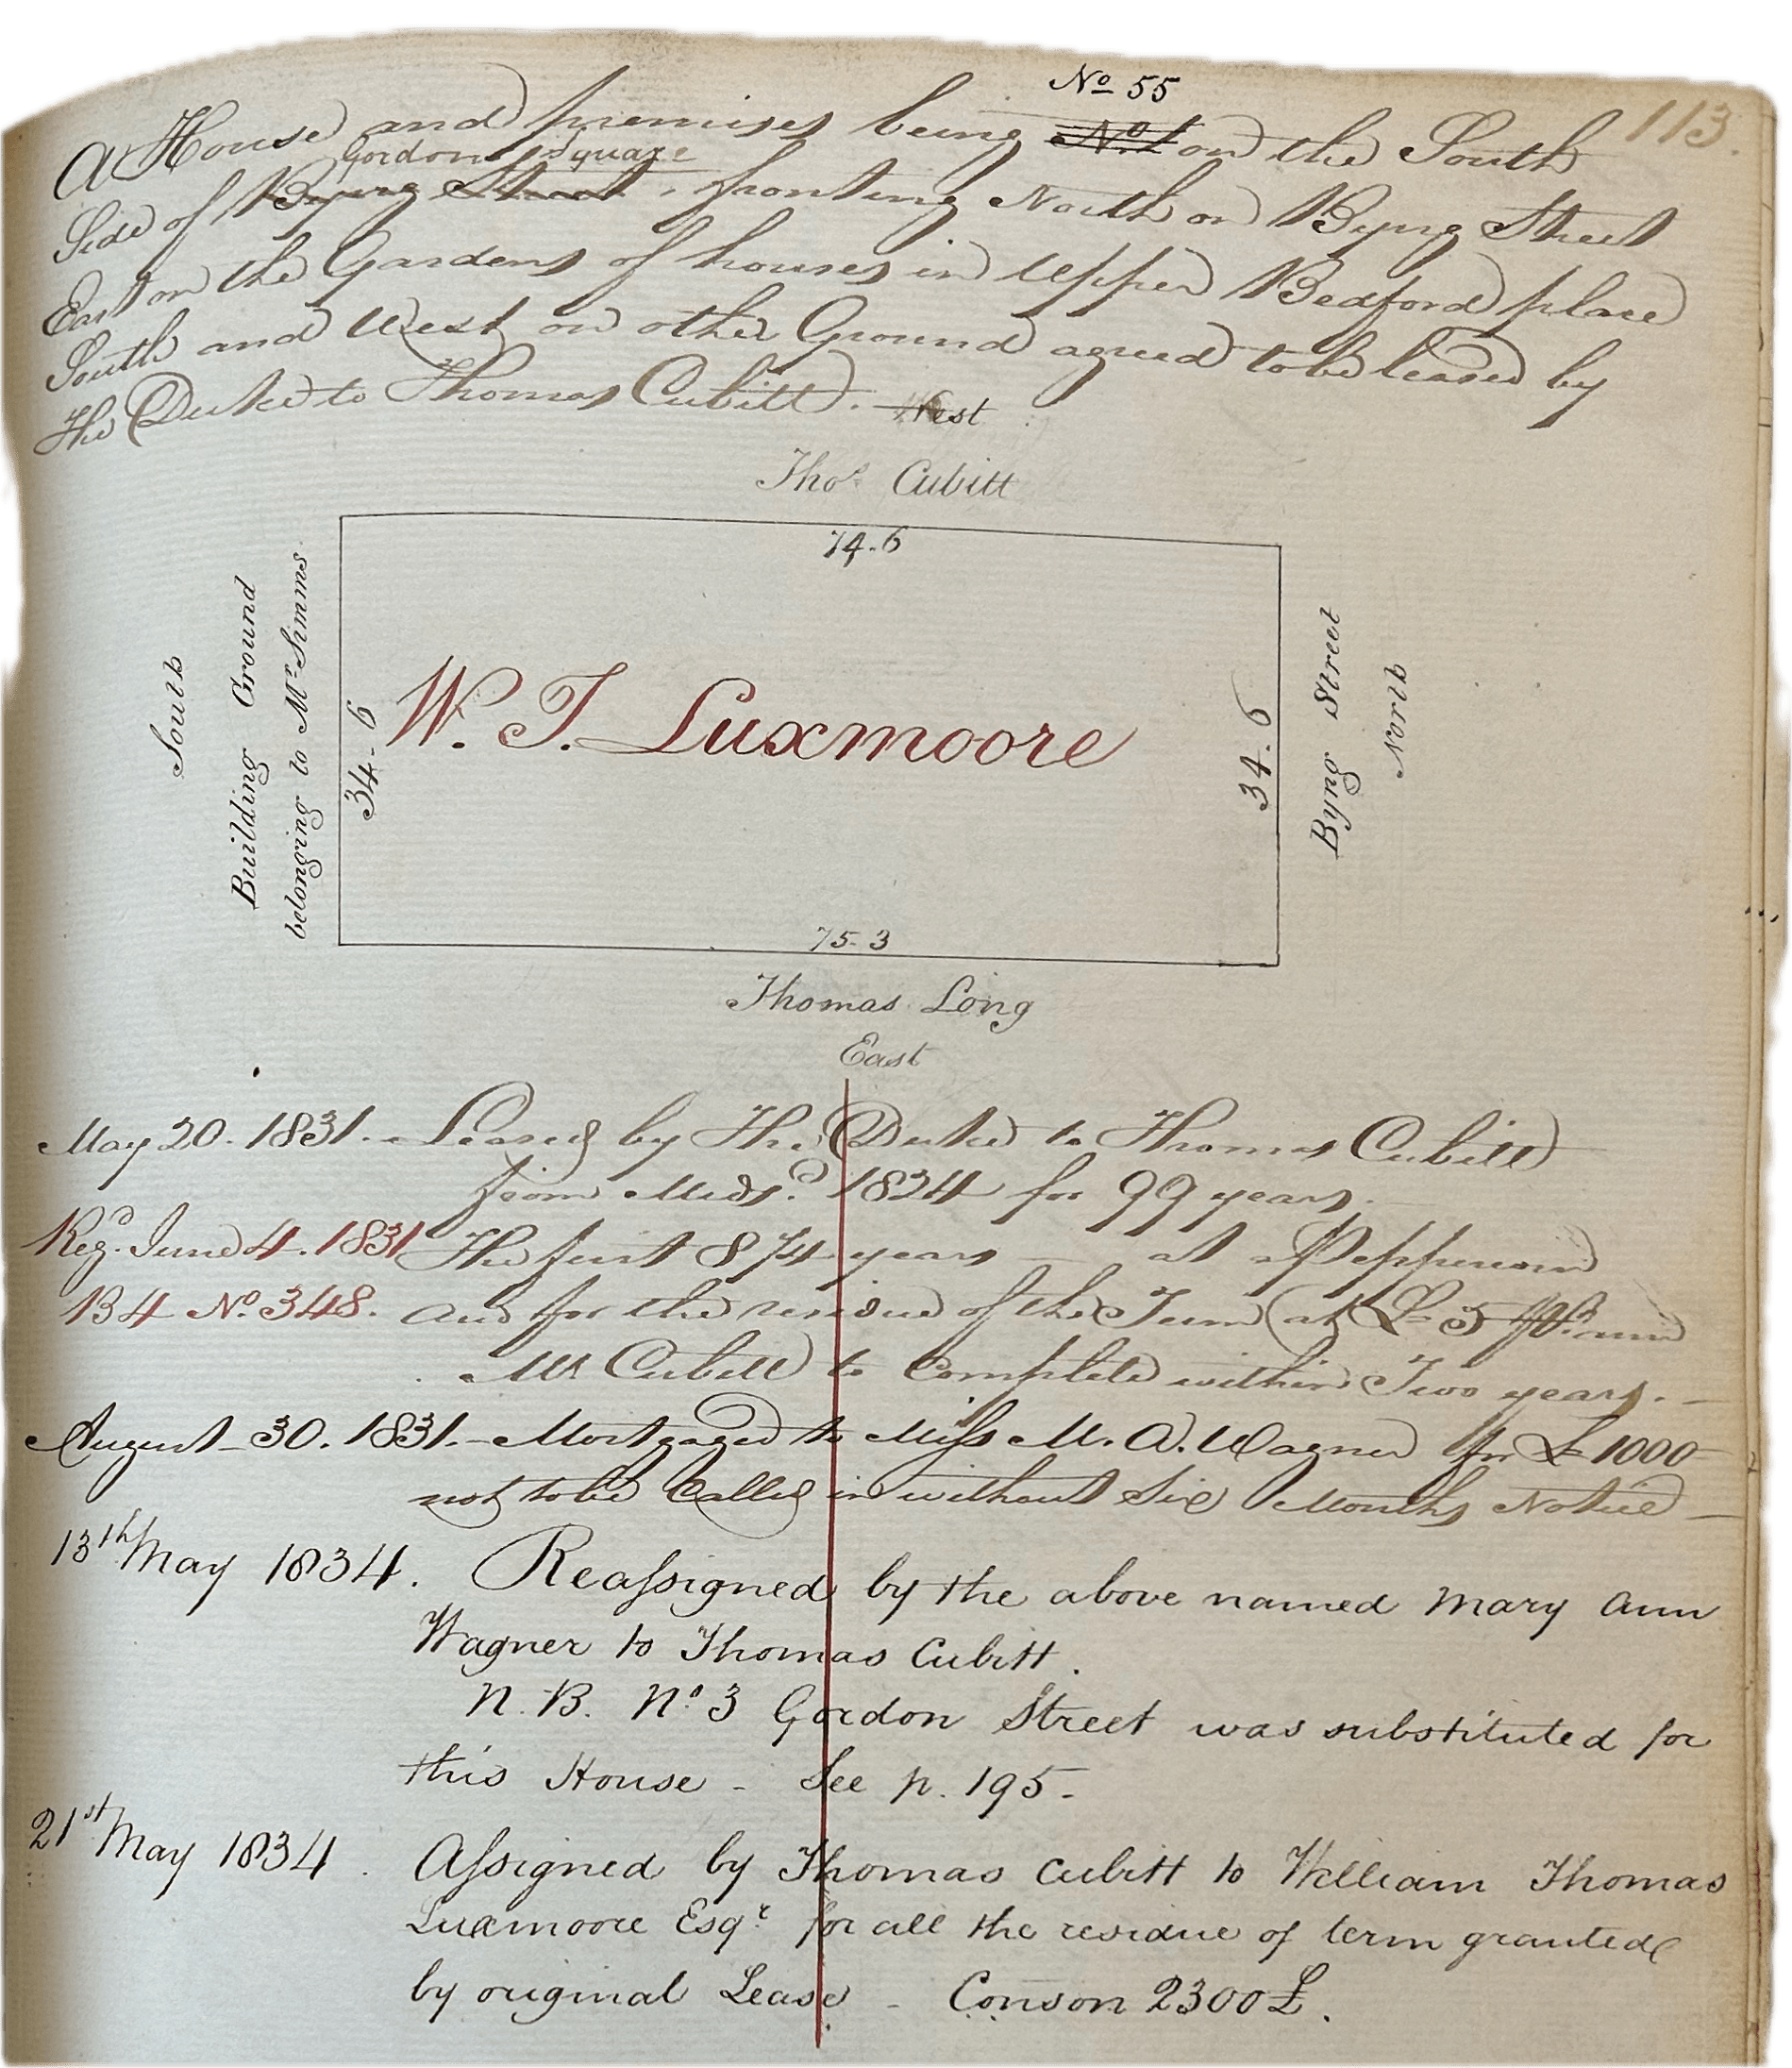 113.
No 55
A House and premises being No 1 on the South
Gordon Square
Side of Byng Street, fronting North on Byng Street
East on the Gardens of houses in Upper Bedford place
South and West on other Ground agreed to be leased by
The Duke to Thomas Cubitt.
West
Thos. Cubitt
74.6
South
Building Ground
belonging to Mr Simms
34.6
W. T. Luxmoore
34.6
Byng Street
North
75.3
Thomas Long
East
May 20. 1831. Leased by The Duke to Thomas Cubitt
from Midsr. 1824 for 99 years.
Regd. June 4. 1831 The first years at a Peppercorn
B 4 No. 348. and for the residue of the Term at £
Mr Cubitt to complete within Two years.
August 30. 1831. Mortgaged to Miss M. A. Wagner for £1000
not to be Called in without Six Months Notice
13th May 1834. Reassigned by the above named Mary Ann
Wagner to Thomas Cubitt.
N.B. No. 3 Gordon Street was substituted for
this House - See p. 195.
21st May 1834. Assigned by Thomas Cubitt to William Thomas
Luxmoore Esqr. for all the residue of term granted
by original Lease - Conson 2300£.